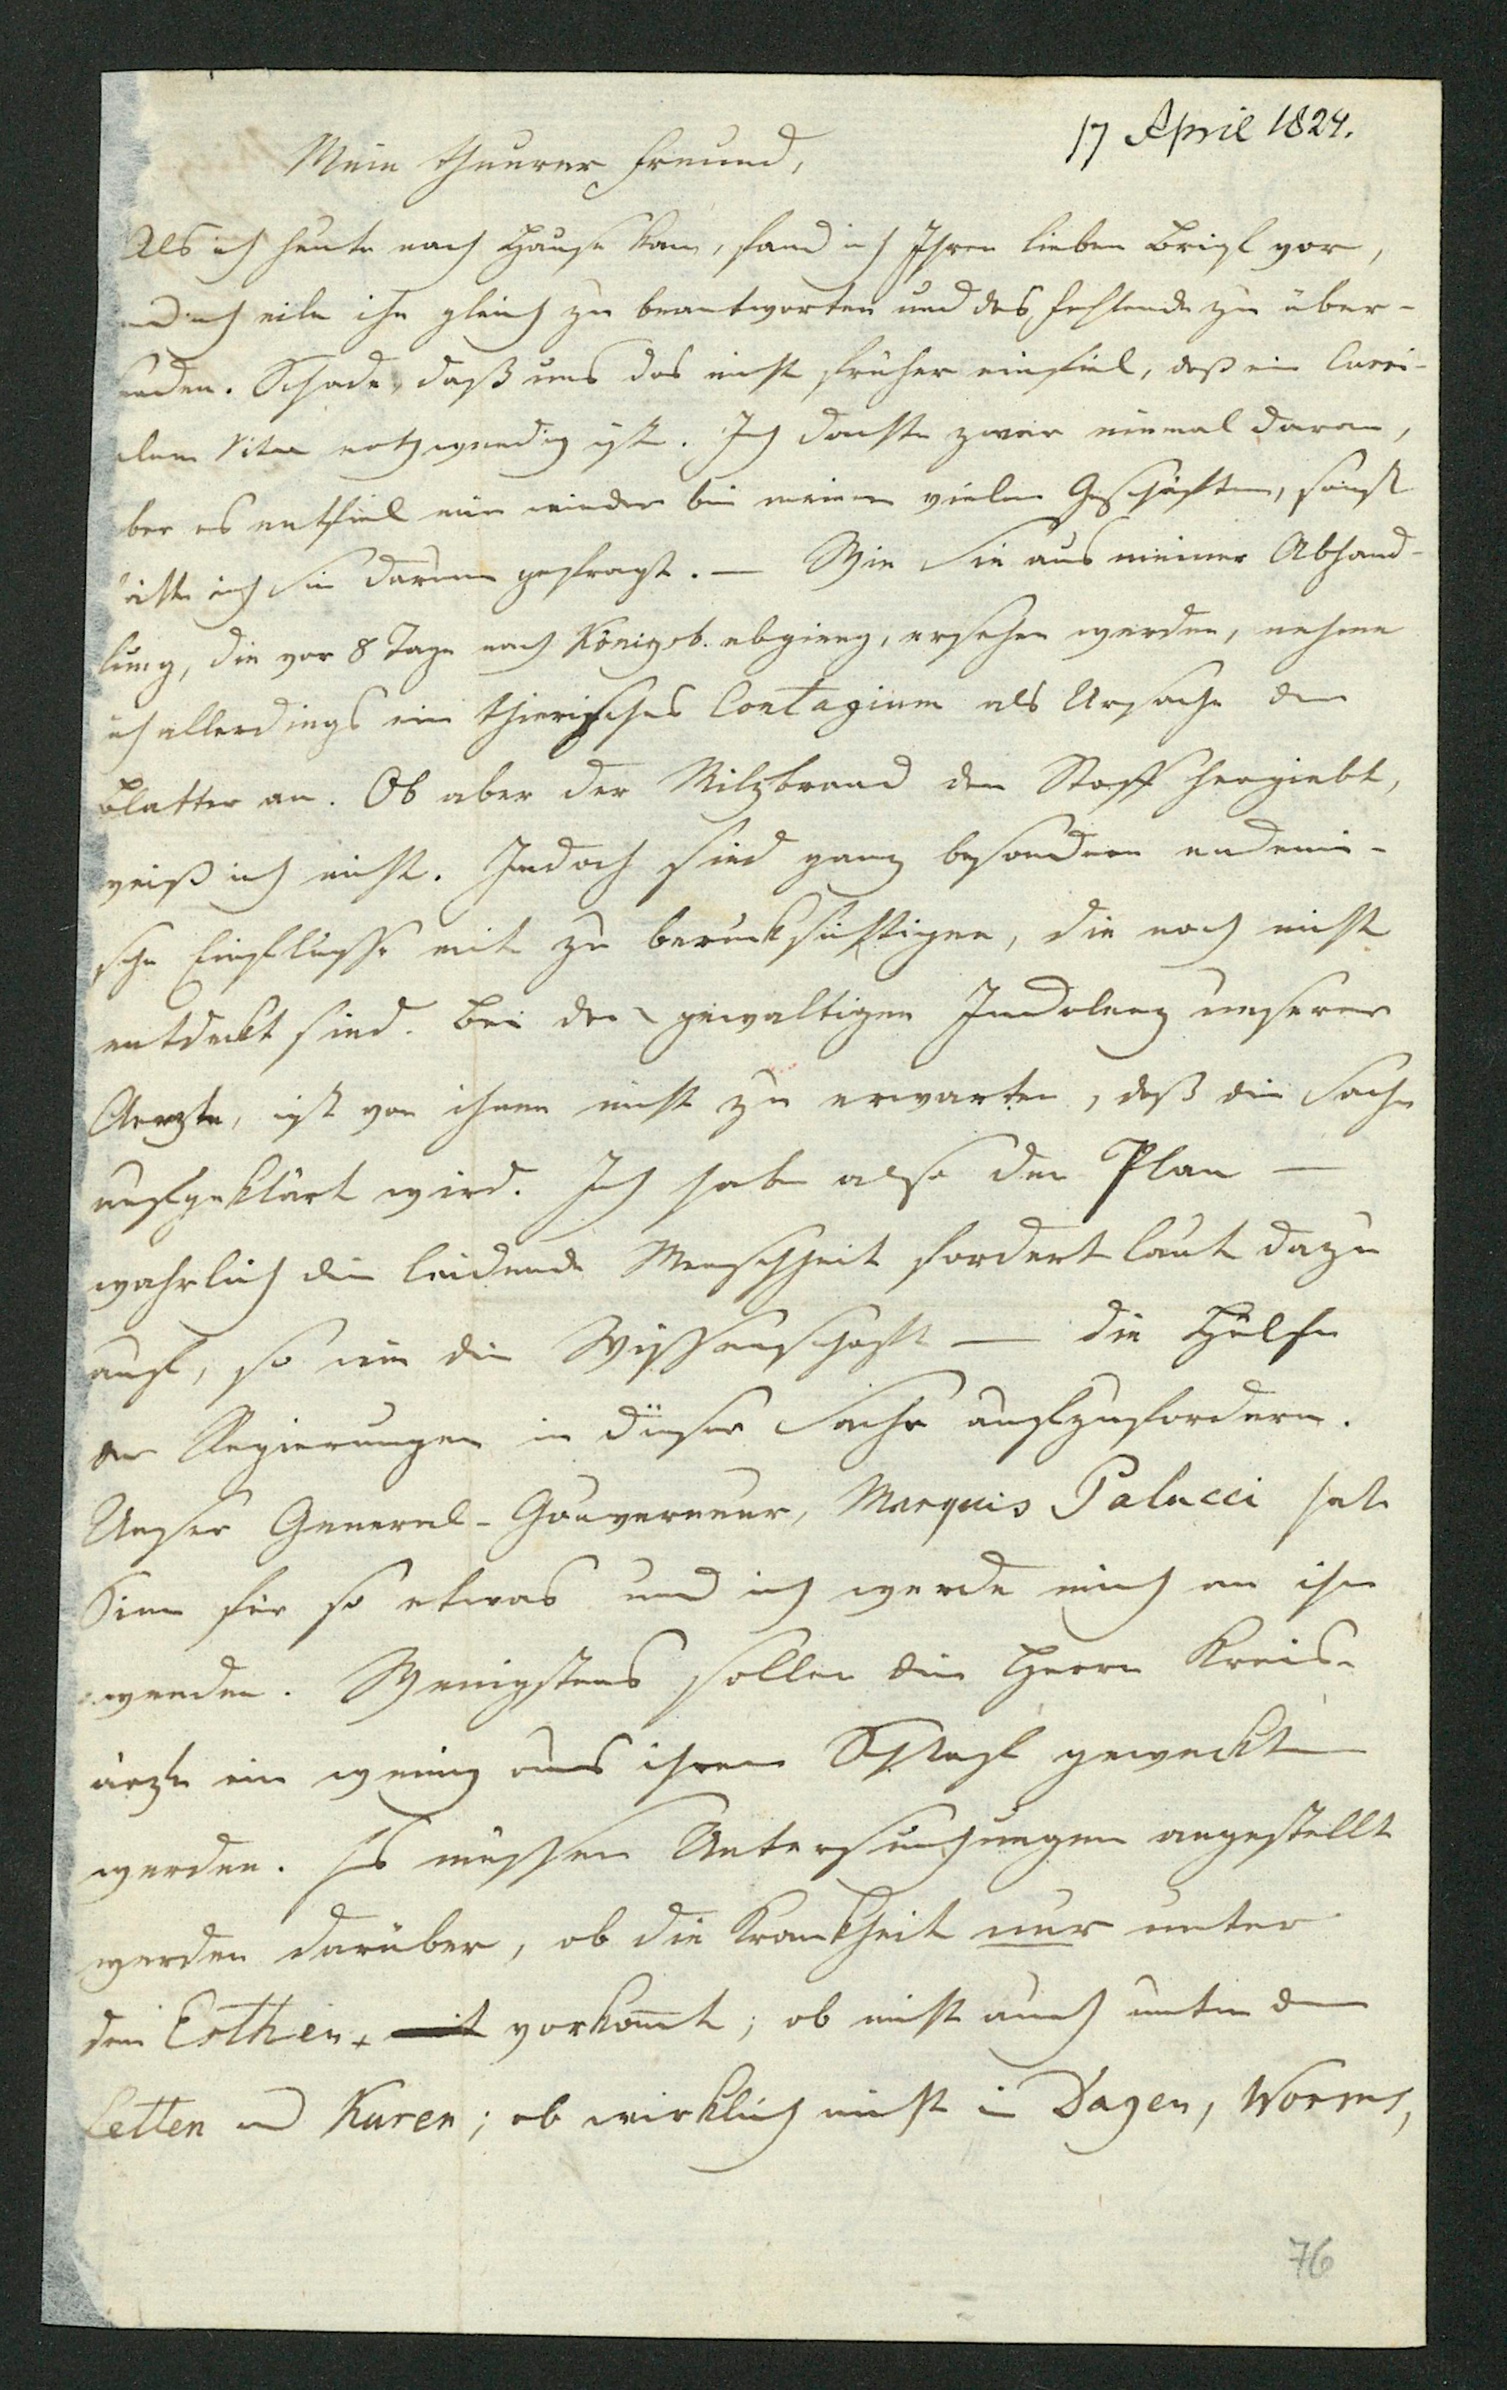 17 April 1824.
Mein theurer Freund,
Als ich heute nach Hause kam, fand ich Ihren lieben Brief vor,
und ich eile ihn gleich zu beantworten und das fehlende zu über-
senden. Schade, daß uns das nicht früher einfiel, daß ein Curri-
culum Vitae nothwendig ist. Ich dachte zwar einmal daran,
aber es entfiel mir wieder bei meinen vielen Geschäften, sonst
hätte ich Sie darum gefragt. — Wie Sie aus meiner Abhand-
lung, die vor 8 Tage nach Königsb. abgieng, ersehen werden, nehme
ich allerdings ein thierisches Contagium als Ursache der
Blatter an. Ob aber der Milzbrand den Stoff hergiebt,
weiß ich nicht. Jedoch sind ganz besondere endemi-
sche Einflüsse mit zu berücksichtigen, die noch nicht
entdeckt sind. Bei der gewaltigen Indolenz unserer
Aerzte, ist von ihnen nicht zu erwarten, daß die Sache
aufgeklärt wird. Ich habe also den Plan —
wahrlich die leidende Menschheit fordert laut dazu
auf, so wie die Wissenschaft — die Hülfe
der Regierungen in dieser Sache aufzufordern.
Unser General-Gouverneur, Marquis Palucci hat
Sinn für so etwas und ich werde mich an ihn
wenden. Wenigstens sollen die Herrn Kreis-
ärzte ein wenig aus ihrem Schlaf geweckt
werden. Es müssen Untersuchungen angestellt
werden darüber, ob die Krankheit nur unter
den Esthen vorkomt; ob nicht auch unter den
Letten und Kuren; ob wirklich nicht in Dagen, Worms,
76